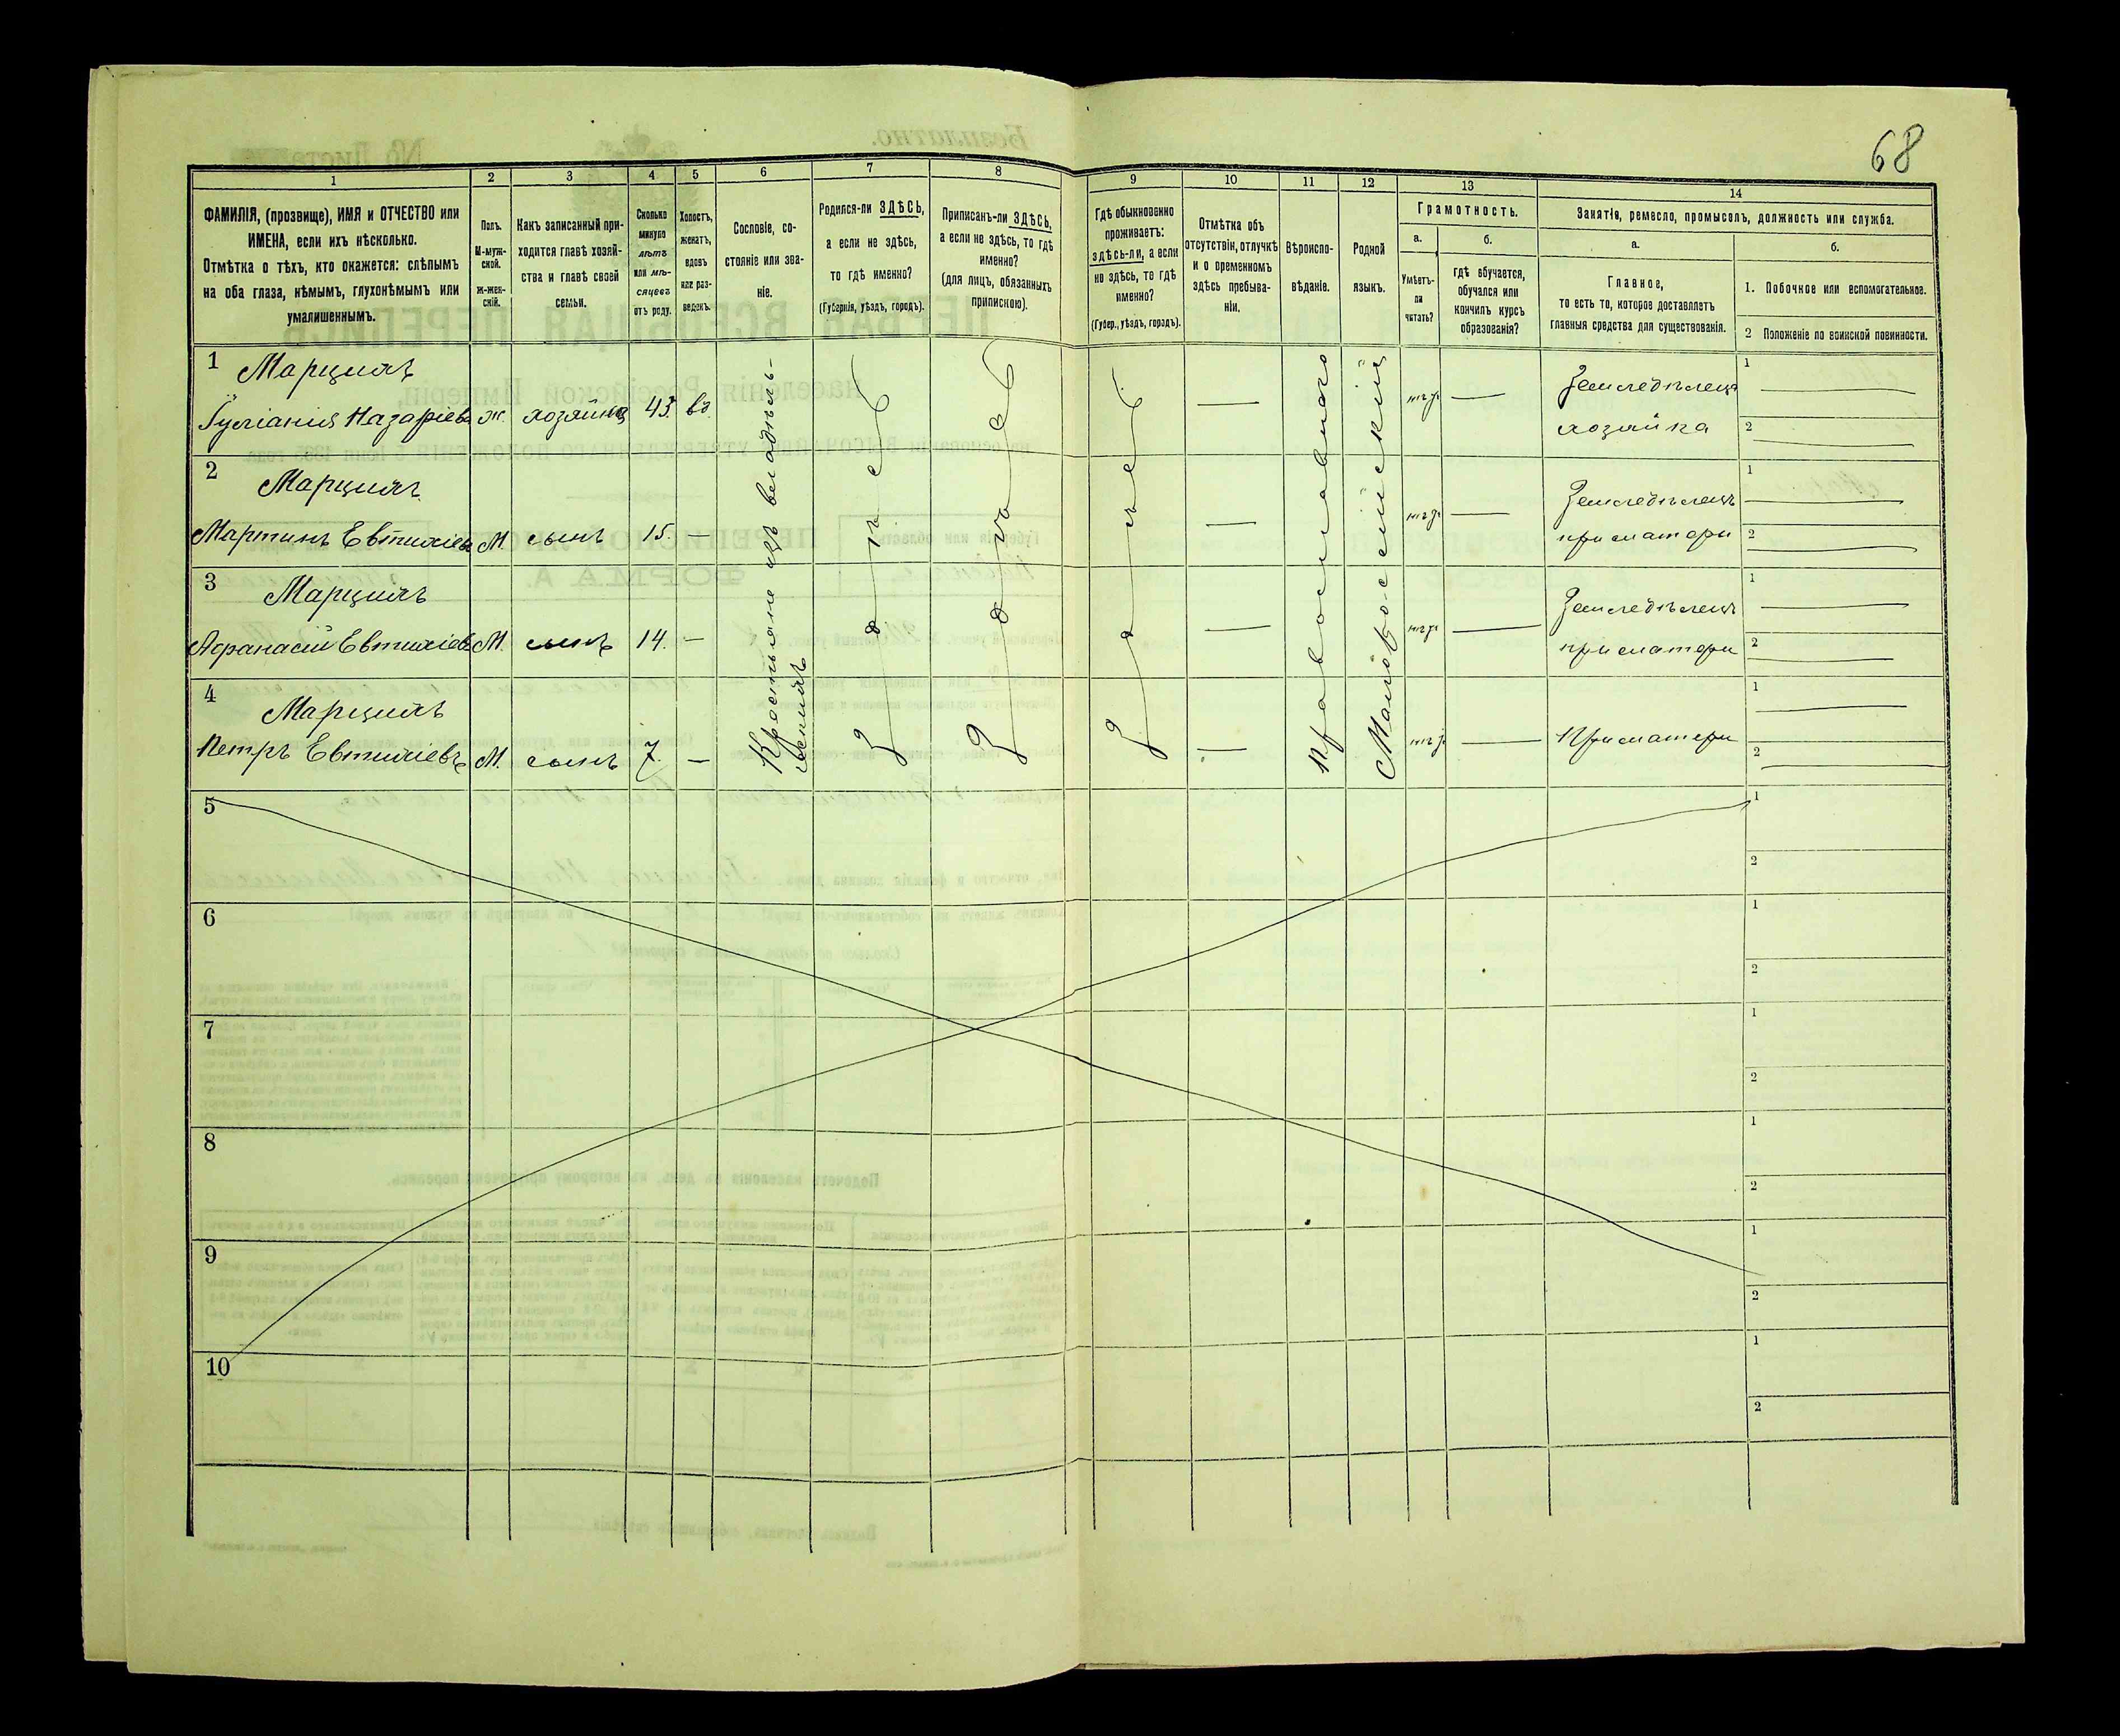 68
1
2
3
4
5
6
7
8
9
10
11
12
13
14
ФАМИЛІЯ, (прозвище), ИМЯ и ОТЧЕСТВО или
ИМЕНА, если ихъ нѣсколько.
Отмѣтка о тѣхъ, кто окажется: слѣпымъ
на оба глаза, нѣмымъ, глухонѣмымъ или
умалишеннымъ.
Полъ.
М-муж-
ской.
ж-жен-
скій.
Какъ записанный при-
ходится главѣ хозяй-
ства и главѣ своей
семьи.
Сколько
минуло
лѣтъ
или мѣ-
сяцевъ
отъ роду.
Холостъ,
женатъ,
вдовъ
или раз-
веденъ.
Сословіе, со-
стояніе или зва-
ніе.
Родился-ли ЗДѢСЬ,
а если не здѣсь,
то гдѣ именно?
(Губернія, уѣздъ, городъ).
Приписанъ-ли ЗДѢСЬ,
а если не здѣсь, то гдѣ
именно?
(для лицъ, обязанныхъ
припискою).
Гдѣ обыкновенно
проживаетъ:
здѣсь-ли, а если
не здѣсь, то гдѣ
именно?
(Губер., уѣздъ, городъ).
Отмѣтка объ
отсутствіи, отлучкѣ
и о временномъ
здѣсь пребыва-
ніи.
Вѣроиспо-
вѣданіе.
Родной
языкъ.
Грамотность.
а.
Умѣетъ-
ли
читать?
б.
гдѣ обучается,
обучался или
кончилъ курсъ
образованія?
Занятіе, ремесло, промыселъ, должность или служба.
а.
Главное,
то есть то, которое доставляетъ
главныя средства для существованія.
б.
1. Побочное или вспомогательное.
2 Положеніе по воинской повинности.
1 Марцинъ
Іуліанія Назаріева ж. хозяйка 43. вд.
Земледѣлецъ
хозяйка
1
2
2 Марцинъ
Мартинъ Евтихіевъ М. сынъ 15. —
Земледѣлецъ
при матери
1
2
3 Марцинъ
Афанасій Евтихіевъ М. сынъ 14. —
Земледѣлецъ
при матери
1
2
4 Марцинъ
Петръ Евтихіевъ М. сынъ 7. —
При матери
1
2
Крестьяне изъ владѣль-
Здѣсь
Здѣсь
Здѣсь
Православнаго
Малороссійскій
5
1
2
6
1
2
7
1
2
8
1
2
9
1
2
10
1
2